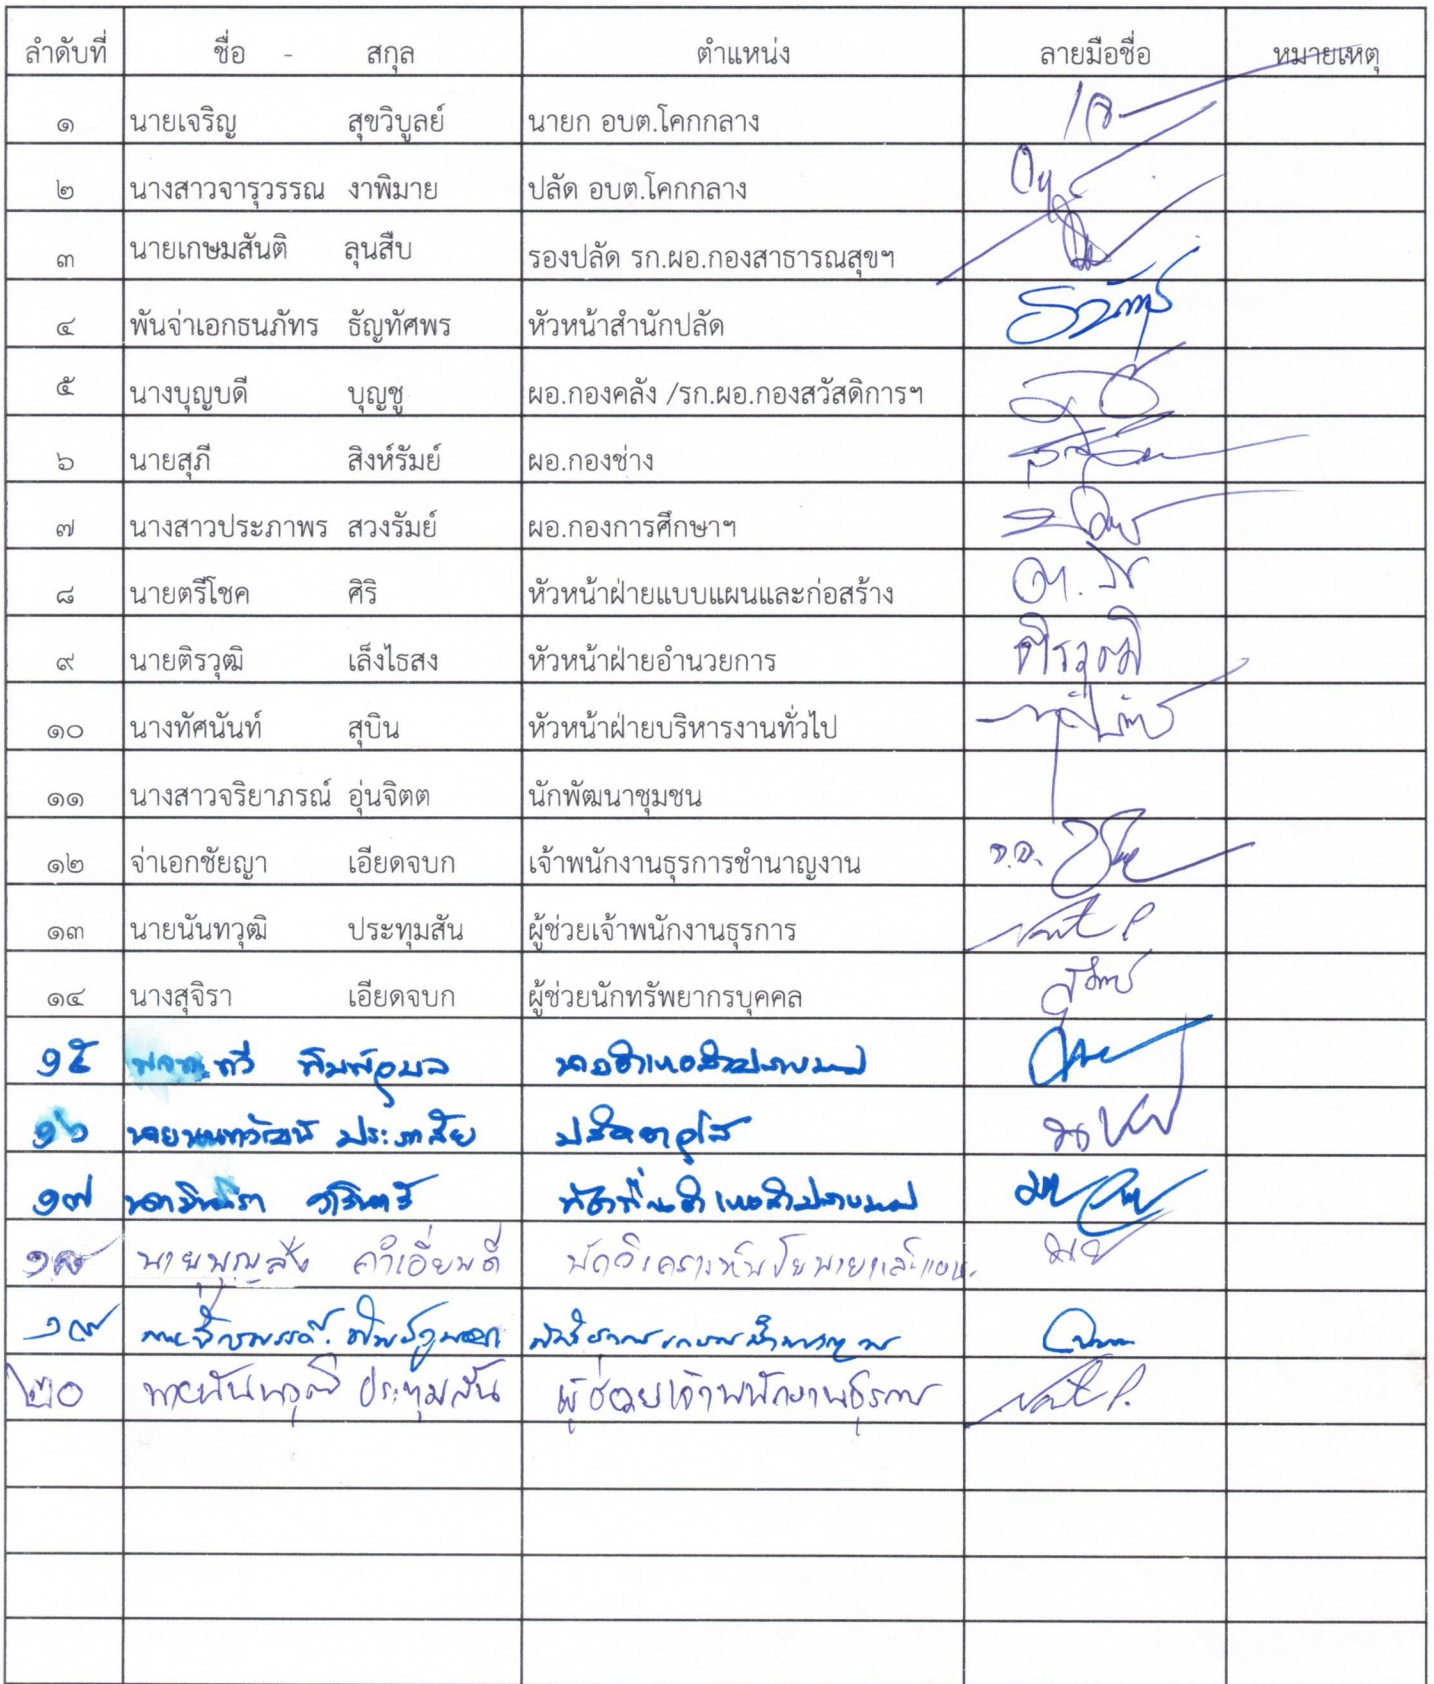 ลำดับที่ ชื่อ - สกุล ตำแหน่ง ลายมือชื่อ หมายเหตุ
๑ นายเจริญ สุขวิบูลย์ นายก อบต.โคกกลาง
๒ นางสาวจารุวรรณ งาพิมาย ปลัด อบต.โคกกลาง
๓ นายเกษมสันติ ลุนสืบ รองปลัด รก.ผอ.กองสาธารณสุขฯ
๔ พันจ่าเอกธนภัทร ธัญทัศพร หัวหน้าสำนักปลัด
๕ นางบุญบดี บุญชู ผอ.กองคลัง /รก.ผอ.กองสวัสดิการฯ
๖ นายสุภี สิงห์รัมย์ ผอ.กองช่าง
๗ นางสาวประภาพร สวงรัมย์ ผอ.กองการศึกษาฯ
๘ นายตรีโชค ศิริ หัวหน้าฝ่ายแบบแผนและก่อสร้าง
๙ นายติรวุฒิ เล็งไธสง หัวหน้าฝ่ายอำนวยการ
๑๐ นางทัศนันท์ สุบิน หัวหน้าฝ่ายบริหารงานทั่วไป
๑๑ นางสาวจริยาภรณ์ อุ่นจิตต นักพัฒนาชุมชน
๑๒ จ่าเอกชัยญา เอียดจบก เจ้าพนักงานธุรการชำนาญงาน จ.อ.
๑๓ นายนันทวุฒิ ประทุมสัน ผู้ช่วยเจ้าพนักงานธุรการ
๑๔ นางสุจิรา เอียดจบก ผู้ช่วยนักทรัพยากรบุคคล
๑๕ นายอำเภอลำปลายมาศ
๑๖ ปลัดอาวุโส
๑๗ ท้องถิ่นอำเภอลำปลายมาศ
๑๘ นายบุญส่ง คำเอี่ยมดี นักวิเคราะห์นโยบายและแผน
๑๙
๒๐ นายนันทวุฒิ ประทุมสัน ผู้ช่วยเจ้าพนักงานธุรการ